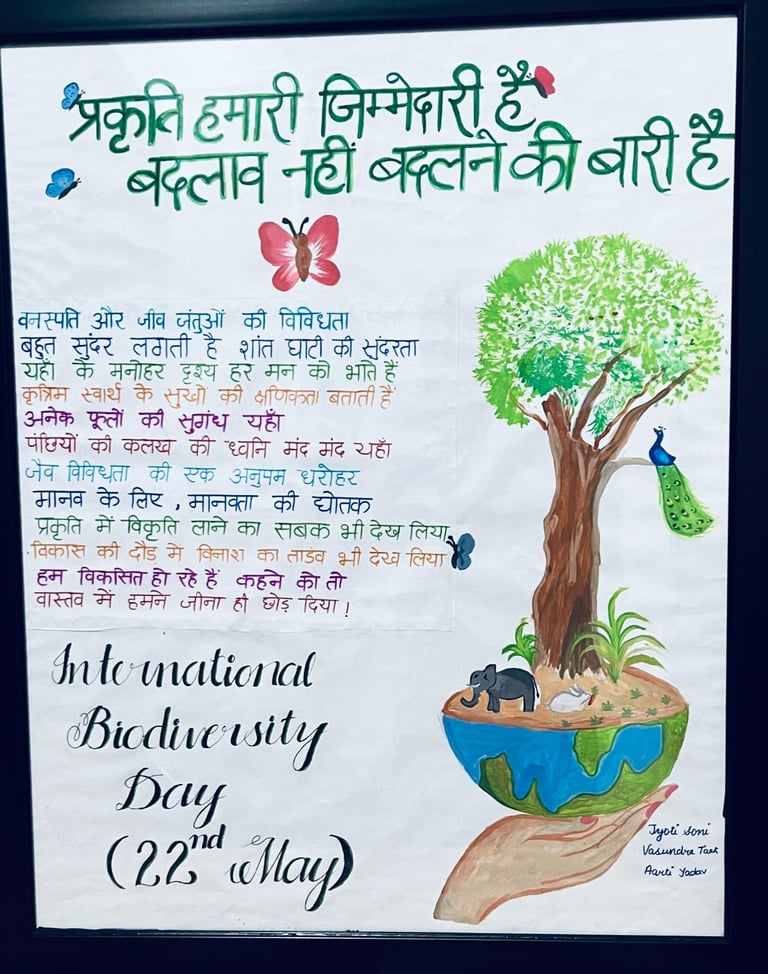 प्रकृति हमारी जिम्मेदारी है
बदलाव नहीं बदलने की बारी है
वनस्पति और जीव जंतुओं की विविधता
बहुत सुंदर लगती है शांत घाटी की सुंदरता
यहाँ के मनोहर दृश्य हर मन को भाते हैं
कृत्रिम स्वार्थ के सुखो की क्षणिकता बताती हैं
अनेक फूलों की सुगंध यहाँ
पंछियों की कलख की ध्वनि मंद मंद यहाँ
जैव विविधता की एक अनुपम धरोहर
मानव के लिए , मानवता की द्योतक
प्रकृति में विकृति लाने का सबक भी देख लिया
विकास की दौड में विनाश का ताडंव भी देख लिया
हम विकसित हो रहे हैं कहने को तो
वास्तव में हमने जीना ही छोड़ दिया !
International
Biodiversity
Day
(22nd May)
Jyoti Soni
Vasundra Tank
Aarti Yadav